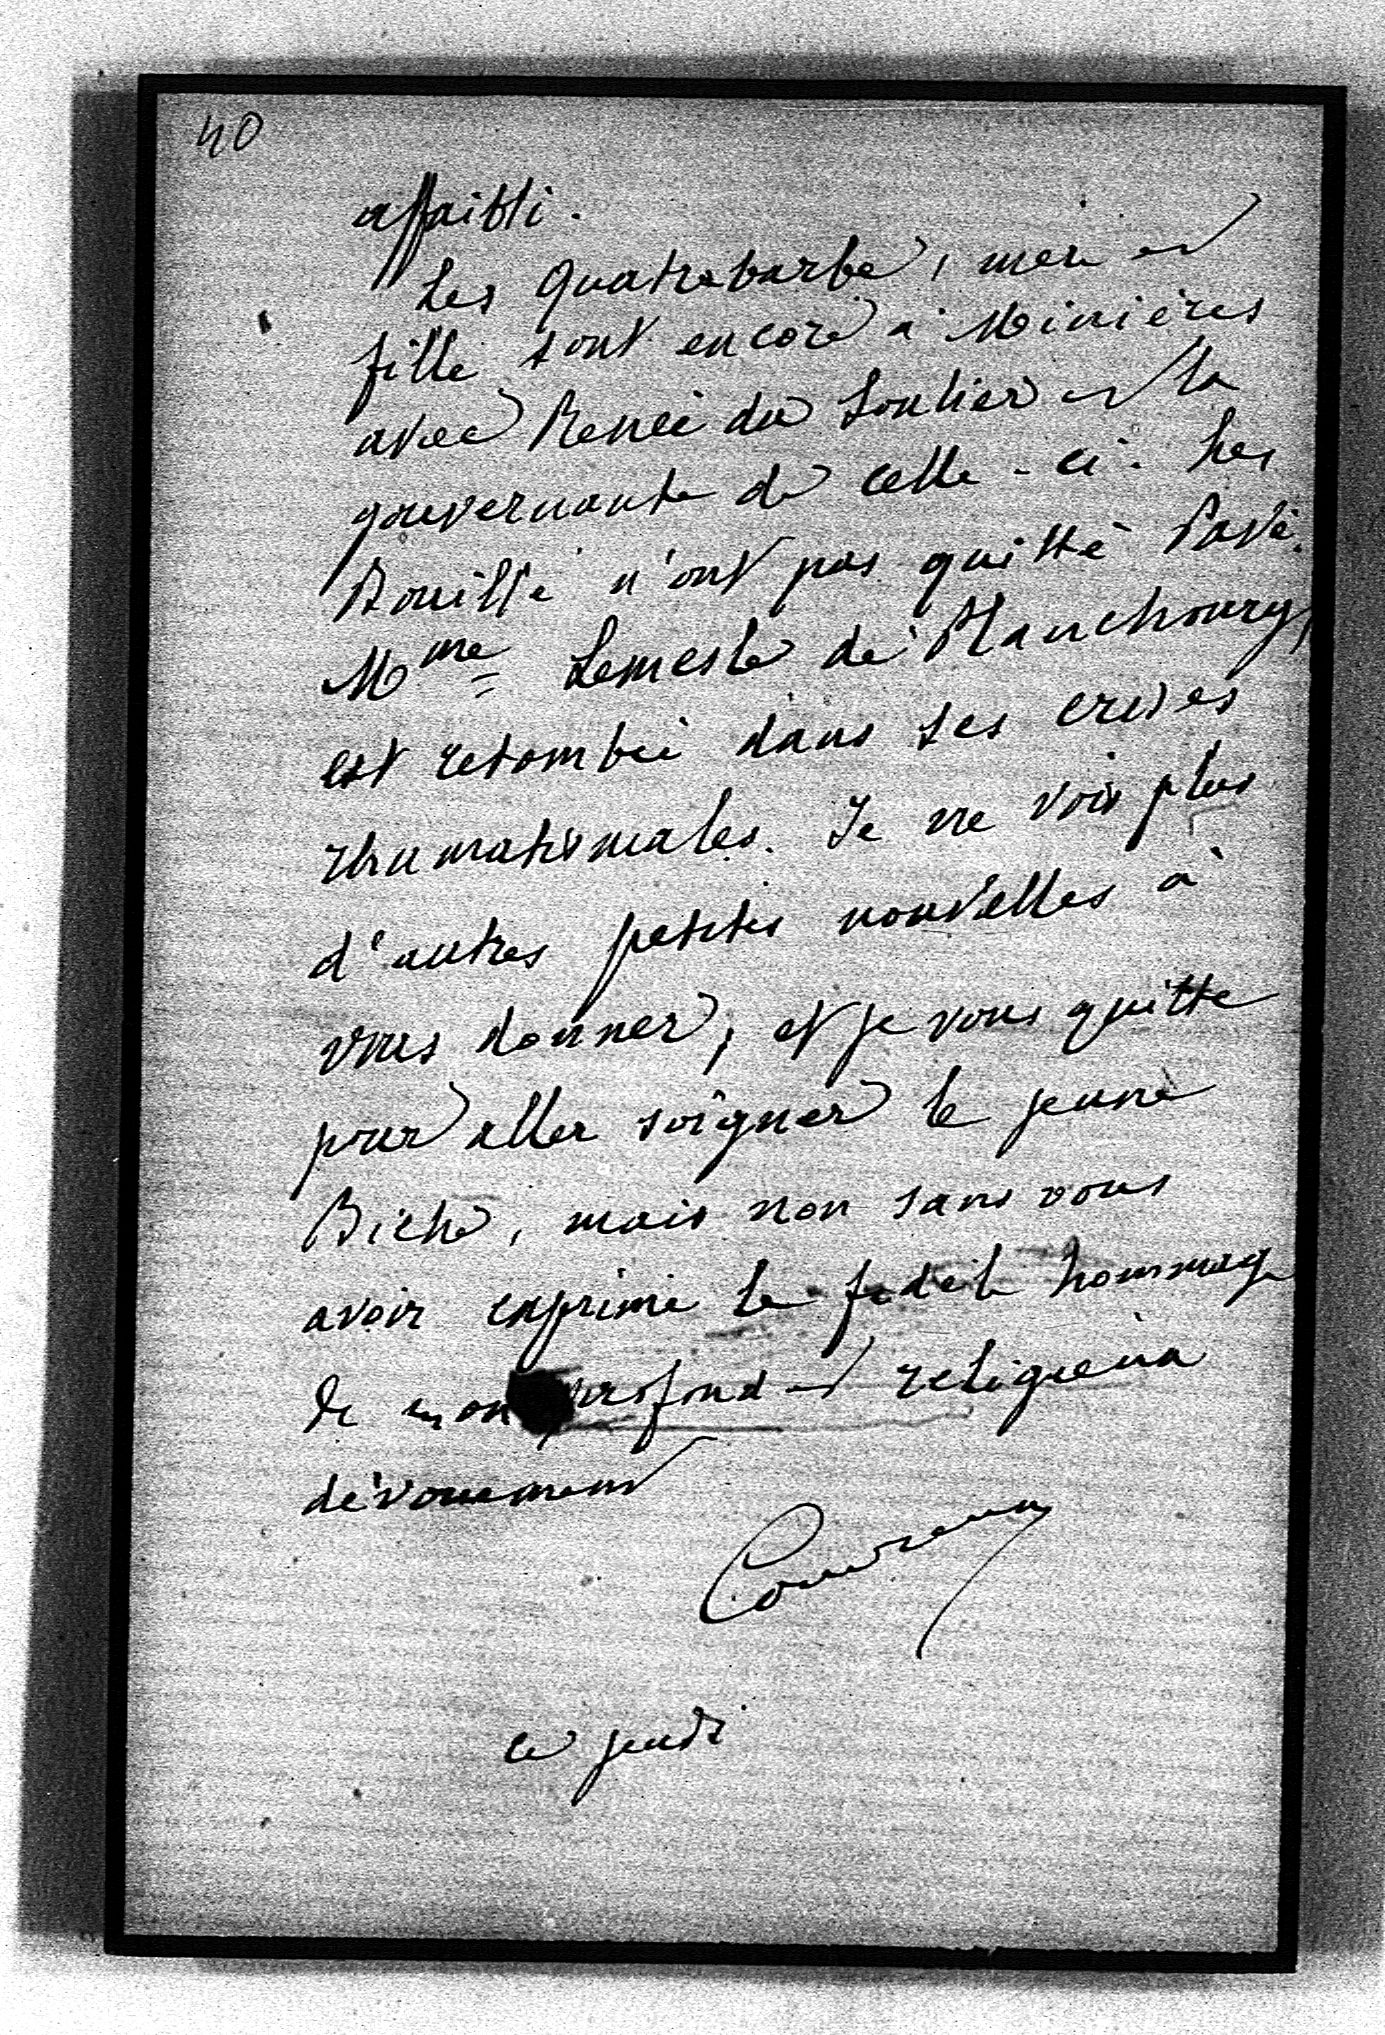 40
affaibli.
Les Quatrebarbe, mère et
fille sont encore à Minières
avec Renée du Soulier et la
gouvernante de celle-ci. Les
Rouillé n'ont pas quitté Pavé.
Mme Lemesle de Planchoury,
est retombée dans ses crises
rhumatismales. Je ne vois plus
d'autres petites nouvelles à
vous donner, et je vous quitte
pour aller soigner le jeune
Biche, mais non sans vous
avoir exprimé le fidèle hommage
de mon profond et religieux
dévouement
ce jeudi